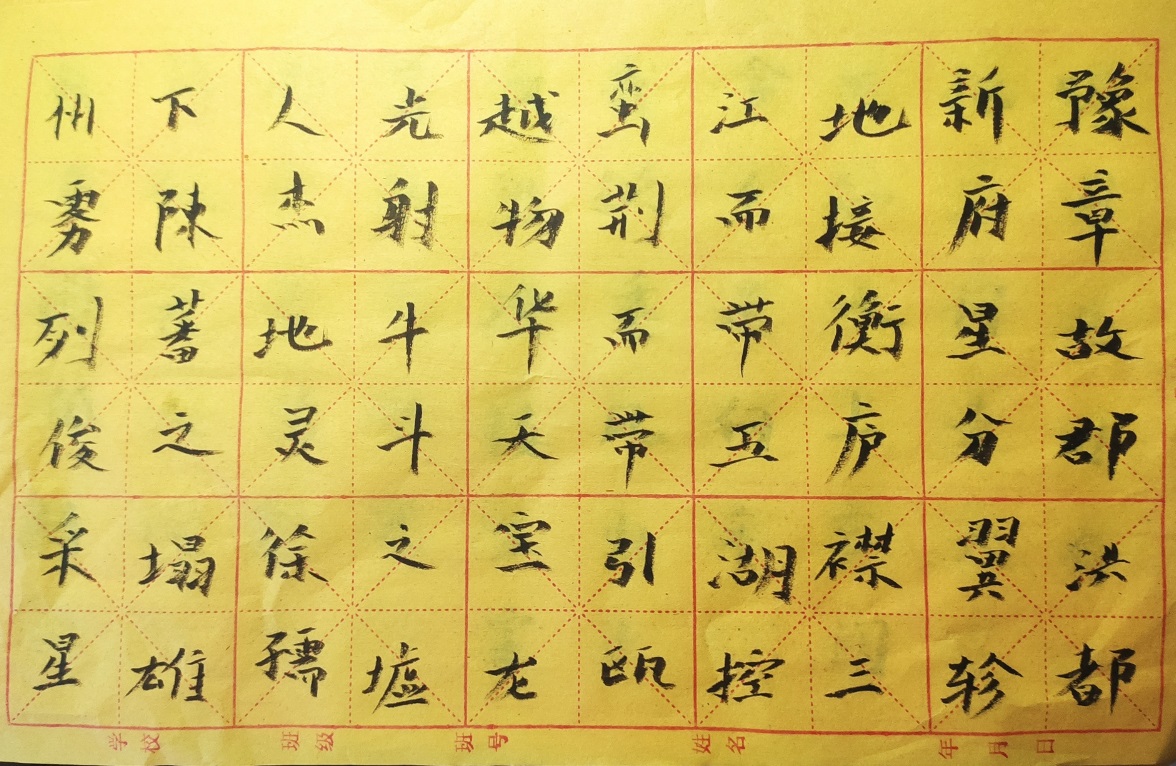 豫章故郡洪都
新府星分翼轸
地接衡庐襟三
江而带五湖控
蛮荆而带引瓯
越物华天宝龙
光射牛斗之墟
人杰地灵徐孺
下陈蕃之塌雄
州雾列俊采星
学校 班级 班号 姓名 年 月 日